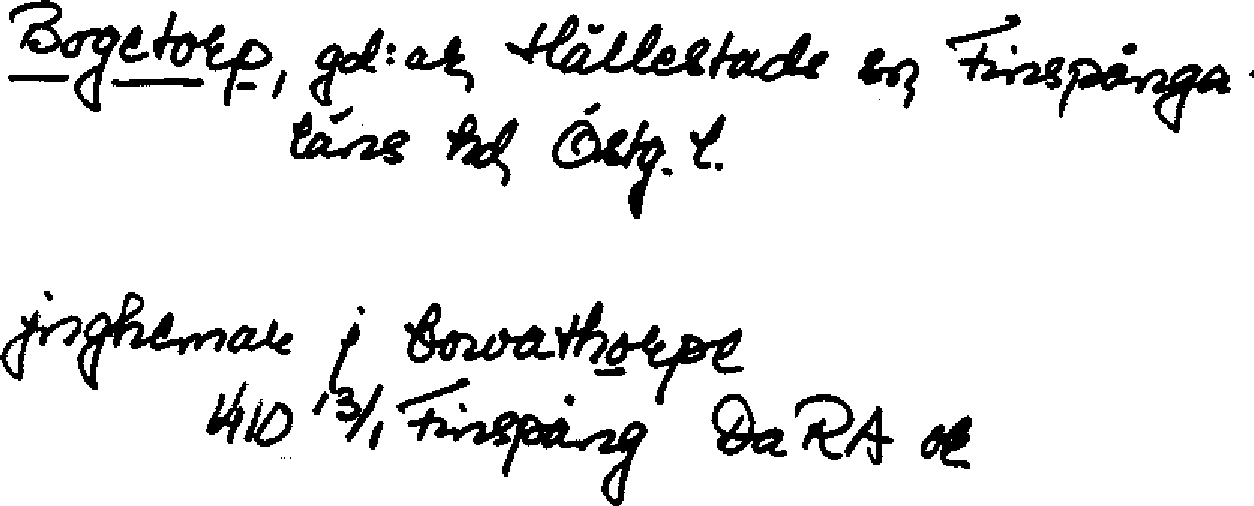 Bogetorp, gd:ar, Hällestads sn, Finspånga
läns hd, Östg. l.
jnghemar j bowathorpe
1410 13/1 Finspång DaRA or